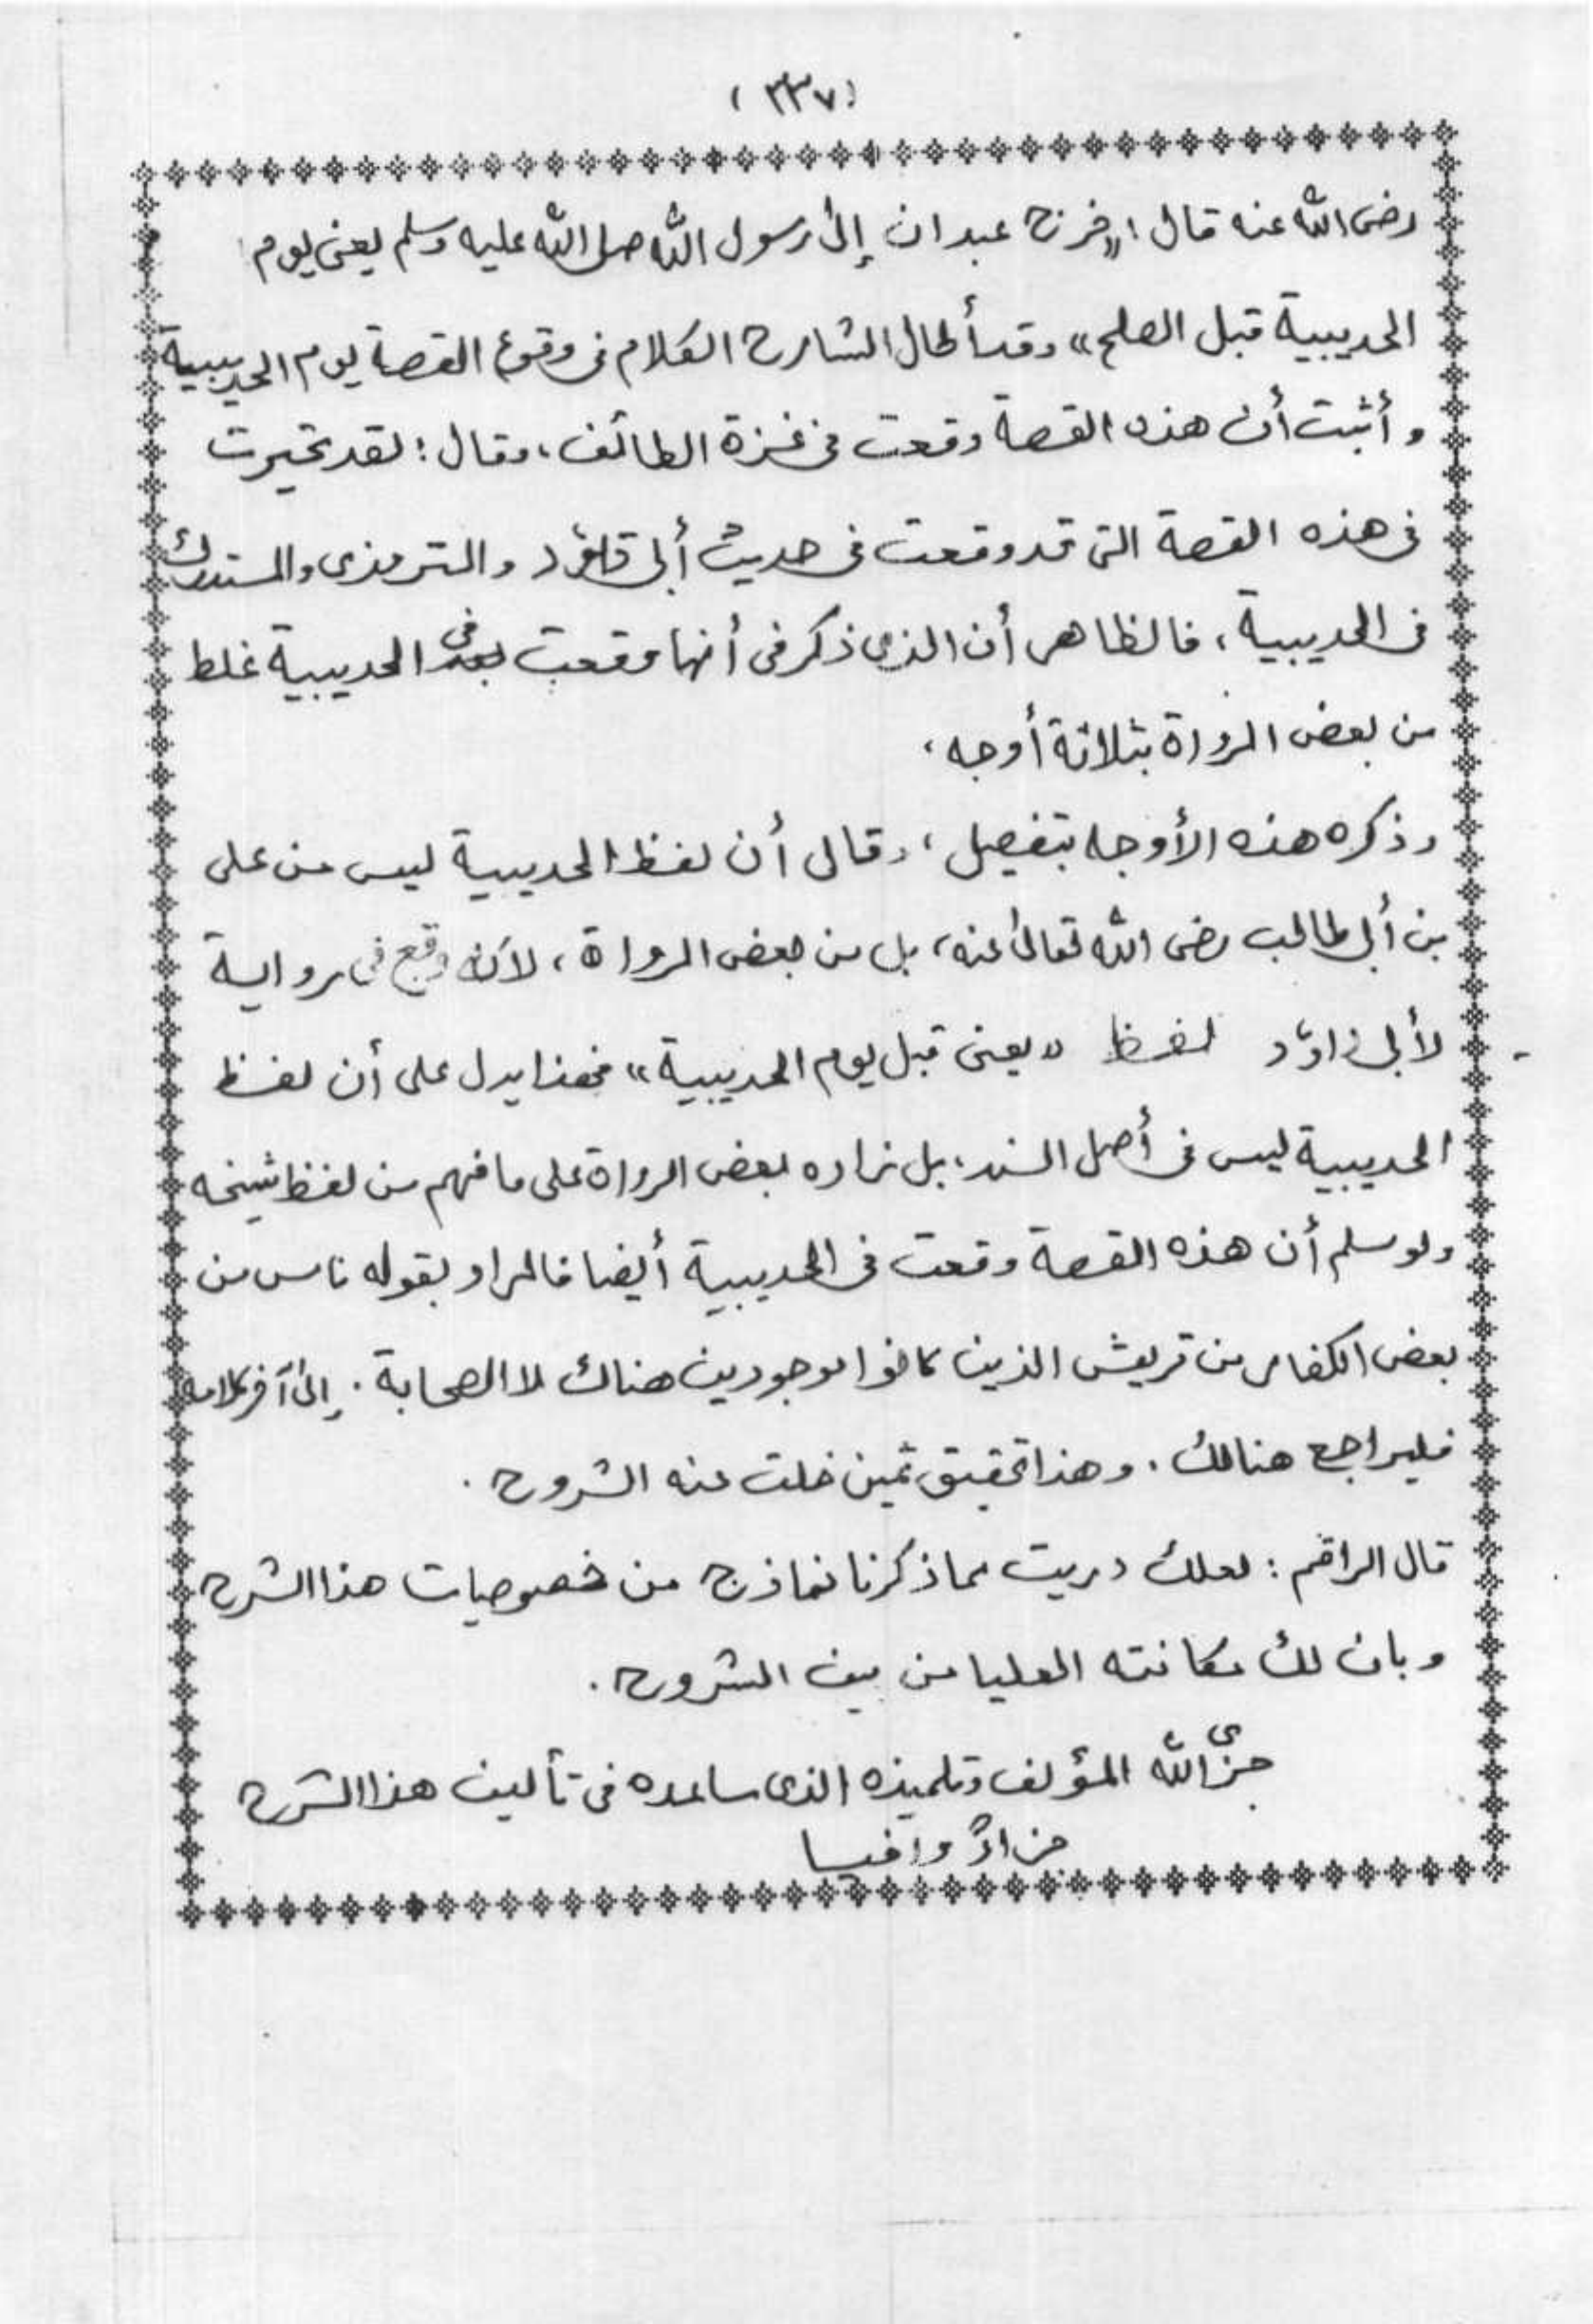 (٣٣٧)
رضى الله عنه قال: «خرج عبدان إلى رسول الله صلى الله عليه وسلم يعنى يوم
الحديبية قبل الصلح» وقد أطال الشارح الكلام فى وقوع القصة يوم الحديبية
و أثبت أن هذه القصة وقعت فى غزة الطائف، وقال: لقد تحيرت
فى هذه القصة التى قد وقعت فى حديث أبى داؤد والترمذى والمستدرك
فى الحديبية، فالظاهر أن الذى ذكر فى أنها وقعت فى الحديبية غلط
من بعض الرواة بثلاثة أوجه،
وذكره هذه الأوجه بتفصيل، وقال أن لفظ الحديبية ليس من على
بن أبى طالب رضى الله تعالى عنه، بل من بعض الرواة، لأنه وقع فى رواية
لأبى داؤد لفظ «يعنى قبل يوم الحديبية» فهذا يدل على أن لفظ
الحديبية ليس فى أصل السند، بل زاده بعض الرواة على ما فهم من لفظ شيخه
ولو سلم أن هذه القصة وقعت فى الحديبية أيضا فالمراد بقوله ناس من
بعض الكفار من قريش الذين كانوا موجودين هناك لا الصحابة. إلى آخر كلامه
فليراجع هنالك. وهذا تحقيق ثمين خلت عنه الشروح.
قال الراقم: لعلك دريت مما ذكرنا نماذج من خصوصيات هذا الشرح
وبان لك مكانته العليا من بين الشروح.
جزى الله المؤلف وتلميذه الذى ساعده فى تأليف هذا الشرح
جزاءً وافيا